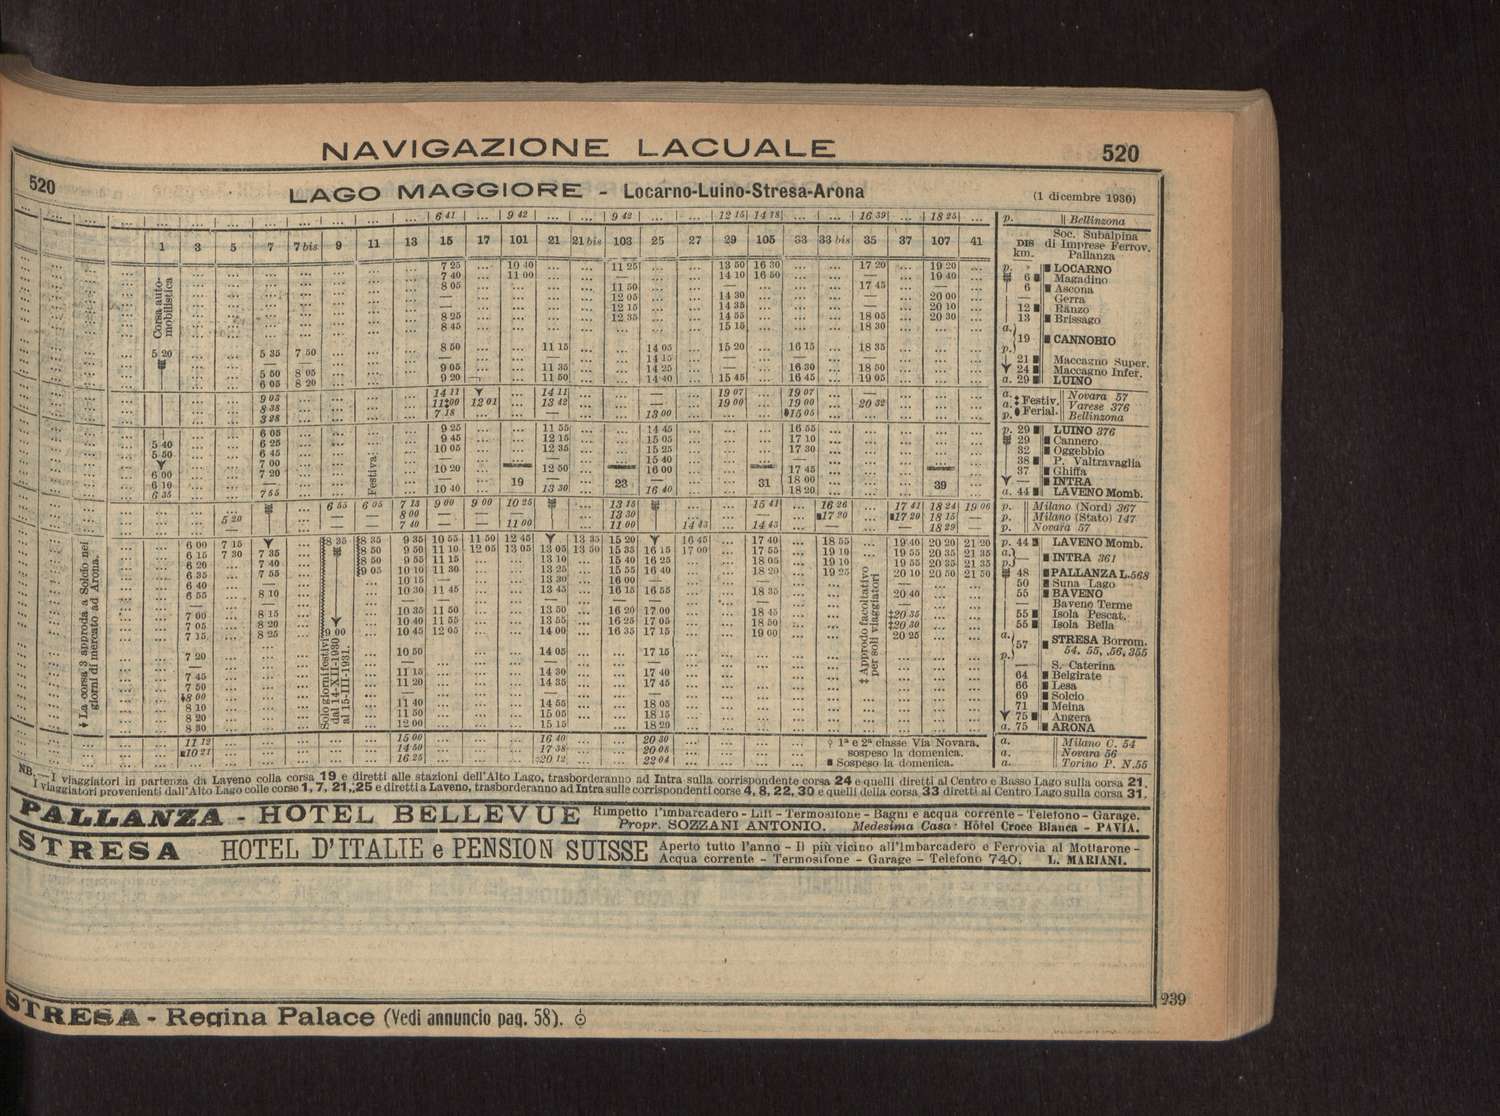 NAVIGAZIONE LACUALE 520
520 LAGO MAGGIORE - Locarno-Luino-Stresa-Arona (1 dicembre 1930)
6 41 ... 9 42 ... ... 9 42 ... ... 12 15 14 18 ... ... 16 39 ... 18 25 ... p. Bellinzona
1 3 5 7 7 bis 9 11 13 15 17 101 21 21 bis 103 25 27 29 105 33 33 bis 35 37 107 41 DIS km. Soc. Subalpina di Imprese Ferrov. Pallanza
Corsa automobilistica
7 25 10 40 11 25 13 50 16 30 17 20 19 20 p. LOCARNO
7 40 11 00 — 14 10 16 50 — 19 40 6 Magadino
8 05 11 50 — 17 45 6 Ascona
— 12 05 14 30 — 20 00 — Gerra
— 12 15 14 35 — 20 10 12 Ranzo
8 25 12 35 14 55 18 05 20 30 13 Brissago
8 45 15 15 18 30 a. 19 CANNOBIO
5 20 5 35 7 50 8 50 11 15 14 05 15 20 16 15 18 35 p.
— — 14 15 — — — 21 Maccagno Super.
5 50 8 05 9 05 11 35 14 25 — 16 30 18 50 24 Maccagno Infer.
6 05 8 20 9 20 11 50 14 40 15 45 16 45 19 05 a. 29 LUINO
9 03 14 11 14 11 19 07 19 07 a. Novara 57
8 38 11‡00 12 01 13 42 19 00 19 00 20 32 a. ‡ Festiv. Varese 376
3 28 7 18 13 00 15 05 p. Ferial. Bellinzona
6 05 9 25 11 55 14 45 16 55 p. 29 LUINO 376
5 40 6 25 9 45 12 15 15 05 17 10 29 Cannero
5 50 6 45 10 05 12 35 15 25 17 30 32 Oggebbio
7 00 — — 15 40 — 38 P. Valtravaglia
6 00 7 20 10 20 12 50 16 00 17 45 37 Ghiffa
6 10 — — 19 — 23 31 18 00 39 — INTRA
6 35 7 55 Festiva. 10 40 13 30 16 40 18 20 a. 44 LAVENO Momb.
6 55 6 05 7 15 9 00 9 00 10 25 13 15 15 41 16 26 17 41 18 24 19 06 p. Milano (Nord) 367
5 20 — — 8 00 — — — 13 30 — 17 20 17 20 18 15 — p. Milano (Stato) 147
7 40 11 00 11 00 14 43 14 43 18 29 p. Novara 57
6 00 7 15 8 35 8 35 9 35 10 55 11 50 12 45 13 35 15 20 16 45 17 40 18 55 19 40 20 20 21 20 p. 44 LAVENO Momb.
6 15 7 30 7 35 8 50 9 50 11 10 12 05 13 05 13 05 13 50 15 35 16 15 17 00 17 55 19 10 19 55 20 35 21 35 a. INTRA 361
6 20 7 40 8 50 9 55 11 15 13 10 15 40 16 25 18 05 19 10 19 55 20 35 21 35 p.
6 35 7 55 9 05 10 10 11 30 13 25 15 55 16 40 18 20 19 25 20 10 20 50 21 50 48 PALLANZA L. 568
6 40 — 10 15 — 13 30 16 00 — — — 50 Suna Lago
6 55 8 10 10 30 11 45 13 45 16 15 16 55 18 35 20 40 55 BAVENO
— — — — — — — — — Baveno Terme
7 00 8 15 10 35 11 50 13 50 16 20 17 00 18 45 ‡20 35 55 Isola Pescat.
7 05 8 20 10 40 11 55 13 55 16 25 17 05 18 50 ‡20 30 55 Isola Bella
7 15 8 25 9 00 10 45 12 05 14 00 16 35 17 15 19 00 20 25 a. 57 STRESA Borrom.
7 20 10 50 14 05 17 15 p. 54, 55, 56, 355
— — — — — S. Caterina
7 45 11 15 14 30 17 40 64 Belgirate
7 50 11 20 14 35 17 45 66 Lesa
8 00 — — — 69 Solcio
8 10 11 40 14 55 18 05 71 Meina
8 20 11 50 15 05 18 15 75 Angera
8 30 12 00 15 15 18 20 a. 75 ARONA
La corsa 3 approda a Solcio nei giorni di mercato ad Arona.
Solo giorni festivi dal 14-XII-1930 al 15-III-1931.
‡ Approdo facoltativo per soli viaggiatori
11 12 15 00 16 40 20 30 ♀ 1ª e 2ª classe Via Novara, a. Milano C. 54
10 21 14 50 17 38 20 08 sospeso la domenica. a. Novara 56
16 25 20 12 22 04 ■ Sospeso la domenica. a. Torino P. N. 55
NB. — I viaggiatori in partenza da Laveno colla corsa 19 e diretti alle stazioni dell'Alto Lago, trasborderanno ad Intra sulla corrispondente corsa 24 e quelli diretti al Centro e Basso Lago sulla corsa 21.
I viaggiatori provenienti dall'Alto Lago colle corse 1, 7, 21, 25 e diretti a Laveno, trasborderanno ad Intra sulle corrispondenti corse 4, 8, 22, 30 e quelli della corsa 33 diretti al Centro Lago sulla corsa 31.
PALLANZA - HOTEL BELLEVUE Rimpetto l'imbarcadero - Lift - Termosifone - Bagni e acqua corrente - Telefono - Garage.
Propr. SOZZANI ANTONIO. Medesima Casa: Hôtel Croce Bianca - PAVIA.
STRESA HOTEL D'ITALIE e PENSION SUISSE Aperto tutto l'anno - Il più vicino all'Imbarcadero e Ferrovia al Mottarone -
Acqua corrente - Termosifone - Garage - Telefono 740. L. MARIANI.
239
STRESA - Regina Palace (Vedi annuncio pag. 58).